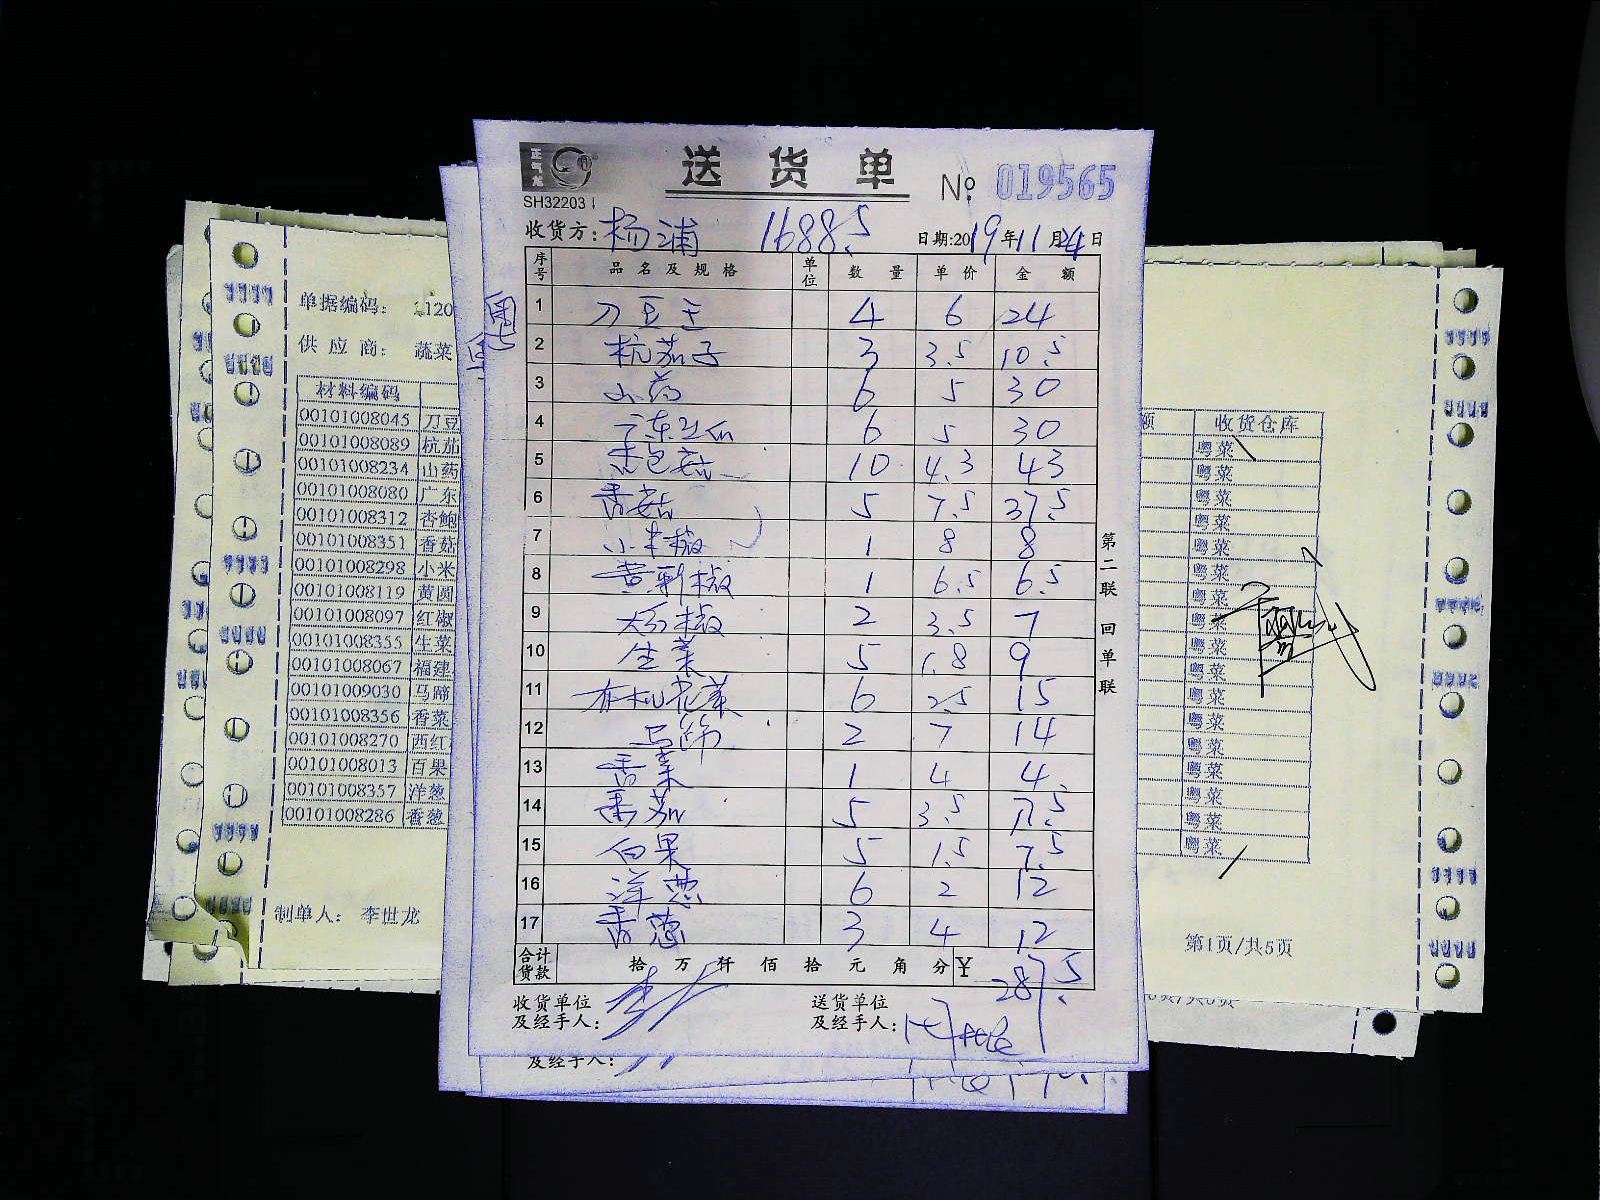 正气龙
送货单
№ 019565
SH32203
收货方: 杨浦 1688.5
日期:2019年11月24日
序号 品名及规格 单位 数量 单价 金额
1 刀豆王 4 6 24
2 杭茄子 3 3.5 10.5
3 山药 6 5 30
4 广东丝瓜 6 5 30
5 10 4.3 43
6 香菇 5 7.5 37.5
7 小米椒 1 8 8
8 1 6.5 6.5
9 2 3.5 7
10 生菜 5 1.8 9
11 有机花菜 6 2.5 15
12 马蹄 2 7 14
13 香菜 1 4 4
14 番茄 5 3.5 17.5
15 白果 5 1.5 7.5
16 洋葱 6 2 12
17 香葱 3 4 12
合计货款 拾万仟佰拾元角分 ¥ 287.5
收货单位及经手人:
送货单位及经手人:
第二联 回单联
及经手人:
单据编码:
供应商: 蔬菜
材料编码
00101008045 刀豆
00101008089 杭茄
00101008234 山药
00101008080 广东
00101008312 杏鲍
00101008351 香菇
00101008298 小米
00101008119 黄圆
00101008097 红椒
00101008355 生菜
00101008067 福建
00101009030 马蹄
00101008356 香菜
00101008270 西红
00101008013 百果
00101008357 洋葱
00101008286 香葱
制单人: 李世龙
额 收货仓库
粤菜
粤菜
粤菜
粤菜
粤菜
粤菜
粤菜
粤菜
粤菜
粤菜
粤菜
粤菜
粤菜
粤菜
粤菜
粤菜
粤菜
第1页/共5页